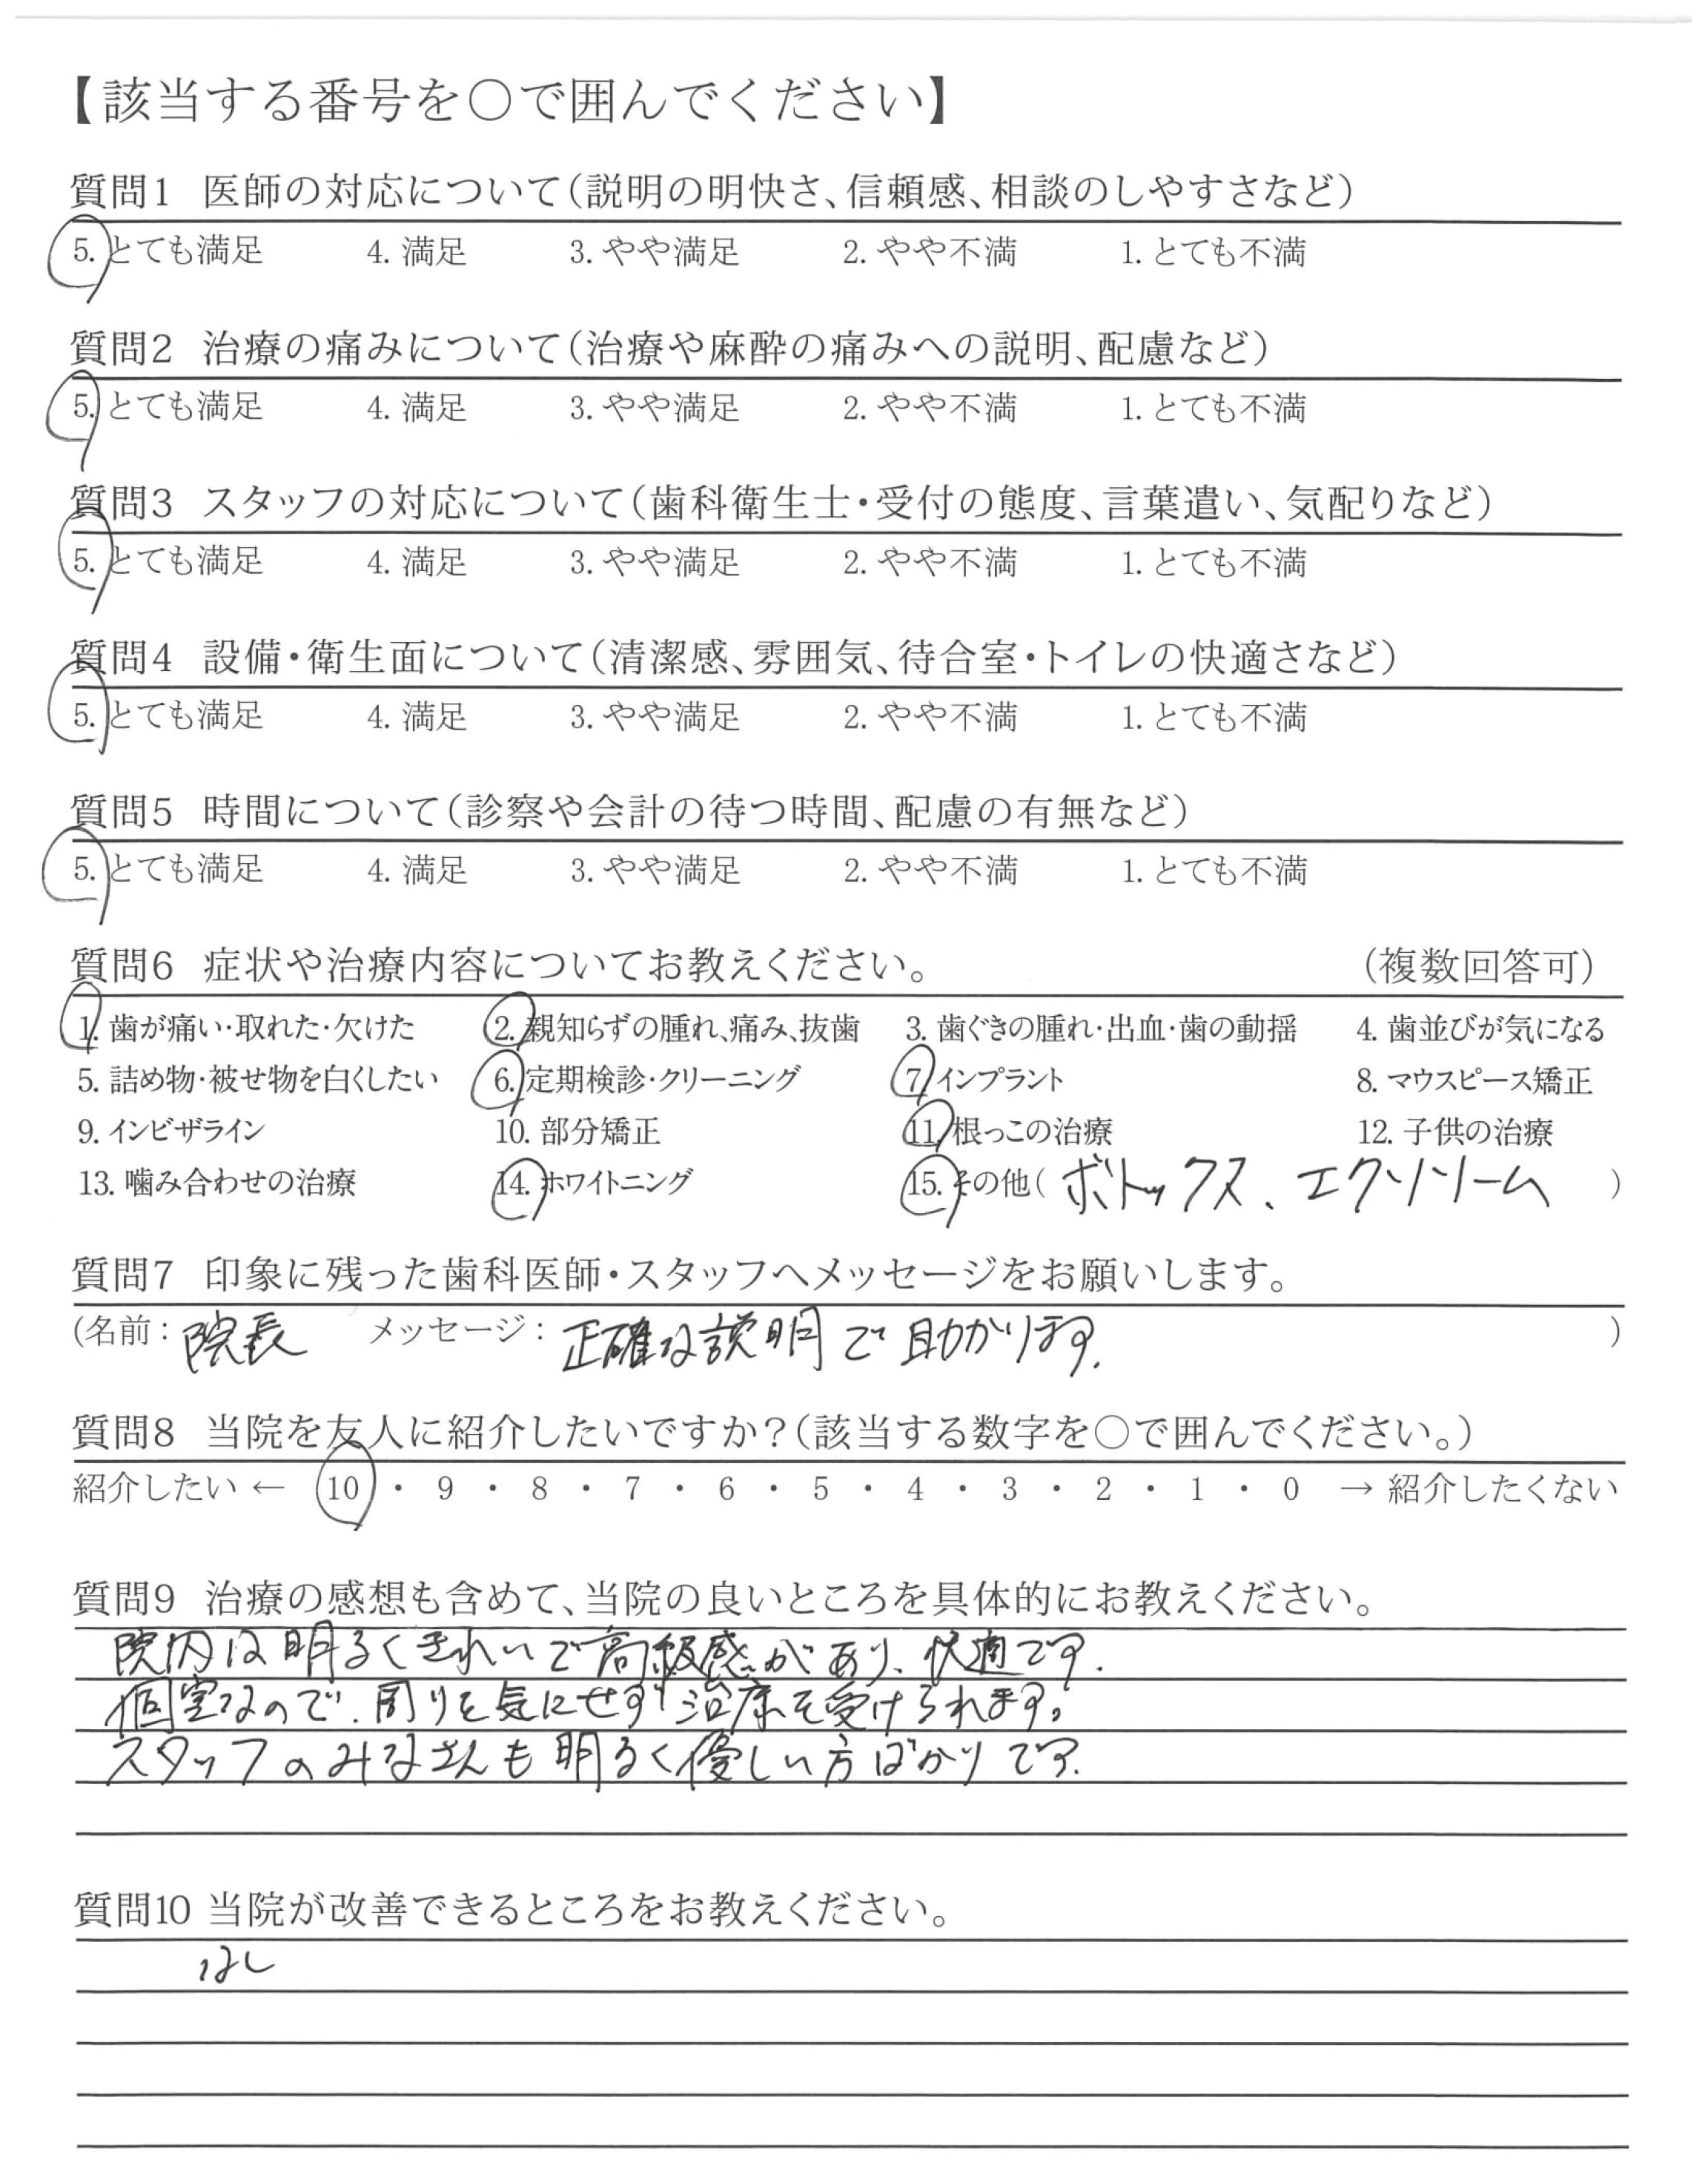 【該当する番号を○で囲んでください】
質問1 医師の対応について(説明の明快さ、信頼感、相談のしやすさなど)
5. とても満足 4. 満足 3. やや満足 2. やや不満 1. とても不満
質問2 治療の痛みについて(治療や麻酔の痛みへの説明、配慮など)
5. とても満足 4. 満足 3. やや満足 2. やや不満 1. とても不満
質問3 スタッフの対応について(歯科衛生士・受付の態度、言葉遣い、気配りなど)
5. とても満足 4. 満足 3. やや満足 2. やや不満 1. とても不満
質問4 設備・衛生面について(清潔感、雰囲気、待合室・トイレの快適さなど)
5. とても満足 4. 満足 3. やや満足 2. やや不満 1. とても不満
質問5 時間について(診察や会計の待つ時間、配慮の有無など)
5. とても満足 4. 満足 3. やや満足 2. やや不満 1. とても不満
質問6 症状や治療内容についてお教えください。 (複数回答可)
1. 歯が痛い・取れた・欠けた 2. 親知らずの腫れ、痛み、抜歯 3. 歯ぐきの腫れ・出血・歯の動揺 4. 歯並びが気になる
5. 詰め物・被せ物を白くしたい 6. 定期検診・クリーニング 7. インプラント 8. マウスピース矯正
9. インビザライン 10. 部分矯正 11. 根っこの治療 12. 子供の治療
13. 噛み合わせの治療 14. ホワイトニング 15. その他( ボトックス、エクソソーム )
質問7 印象に残った歯科医師・スタッフへメッセージをお願いします。
(名前: 院長 メッセージ: 正確な説明で助かります. )
質問8 当院を友人に紹介したいですか?(該当する数字を○で囲んでください。)
紹介したい ← 10 ・ 9 ・ 8 ・ 7 ・ 6 ・ 5 ・ 4 ・ 3 ・ 2 ・ 1 ・ 0 → 紹介したくない
質問9 治療の感想も含めて、当院の良いところを具体的にお教えください。
院内は明るくきれいで高級感があり、快適です.
個室なので、周りを気にせず治療を受けられます。
スタッフのみなさんも明るく優しい方ばかりです.
質問10 当院が改善できるところをお教えください。
なし